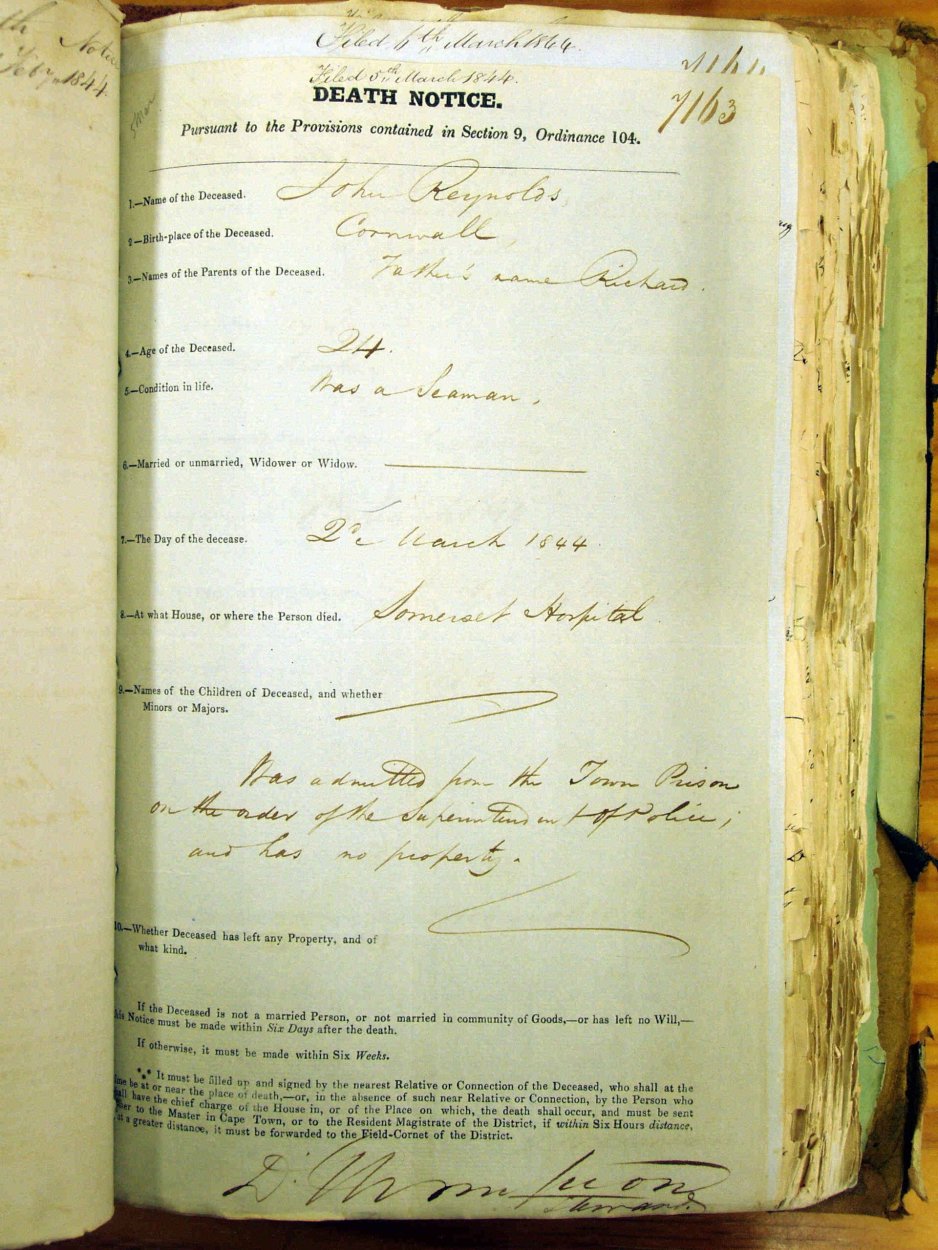 th
Notice
Feby 1844
Filed 6th March 1844.
Filed 5th March 1844.
7163
DEATH NOTICE.
Pursuant to the Provisions contained in Section 9, Ordinance 104.
1.—Name of the Deceased. John Reynolds,
2—Birth-place of the Deceased. Cornwall,
3.—Names of the Parents of the Deceased. Father's name Richard.
4.—Age of the Deceased. 24.
5.—Condition in life. Was a Seaman,
6.—Married or unmarried, Widower or Widow.
7.—The Day of the decease. 2d March 1844
8.—At what House, or where the Person died. Somerset Hospital
9.—Names of the Children of Deceased, and whether
Minors or Majors.
Was admitted from the Town Prison
on the order of the Superintendent of Police;
and has no property.
10.—Whether Deceased has left any Property, and of
what kind.
If the Deceased is not a married Person, or not married in community of Goods,—or has left no Will,—
his Notice must be made within Six Days after the death.
If otherwise, it must be made within Six Weeks.
It must be filled up and signed by the nearest Relative or Connection of the Deceased, who shall at the
ime be at or near the place of death,—or, in the absence of such near Relative or Connection, by the Person who
hall have the chief charge of the House in, or of the Place on which, the death shall occur, and must be sent
ther to the Master in Cape Town, or to the Resident Magistrate of the District, if within Six Hours distance,
at a greater distance, it must be forwarded to the Field-Cornet of the District.
Steward.